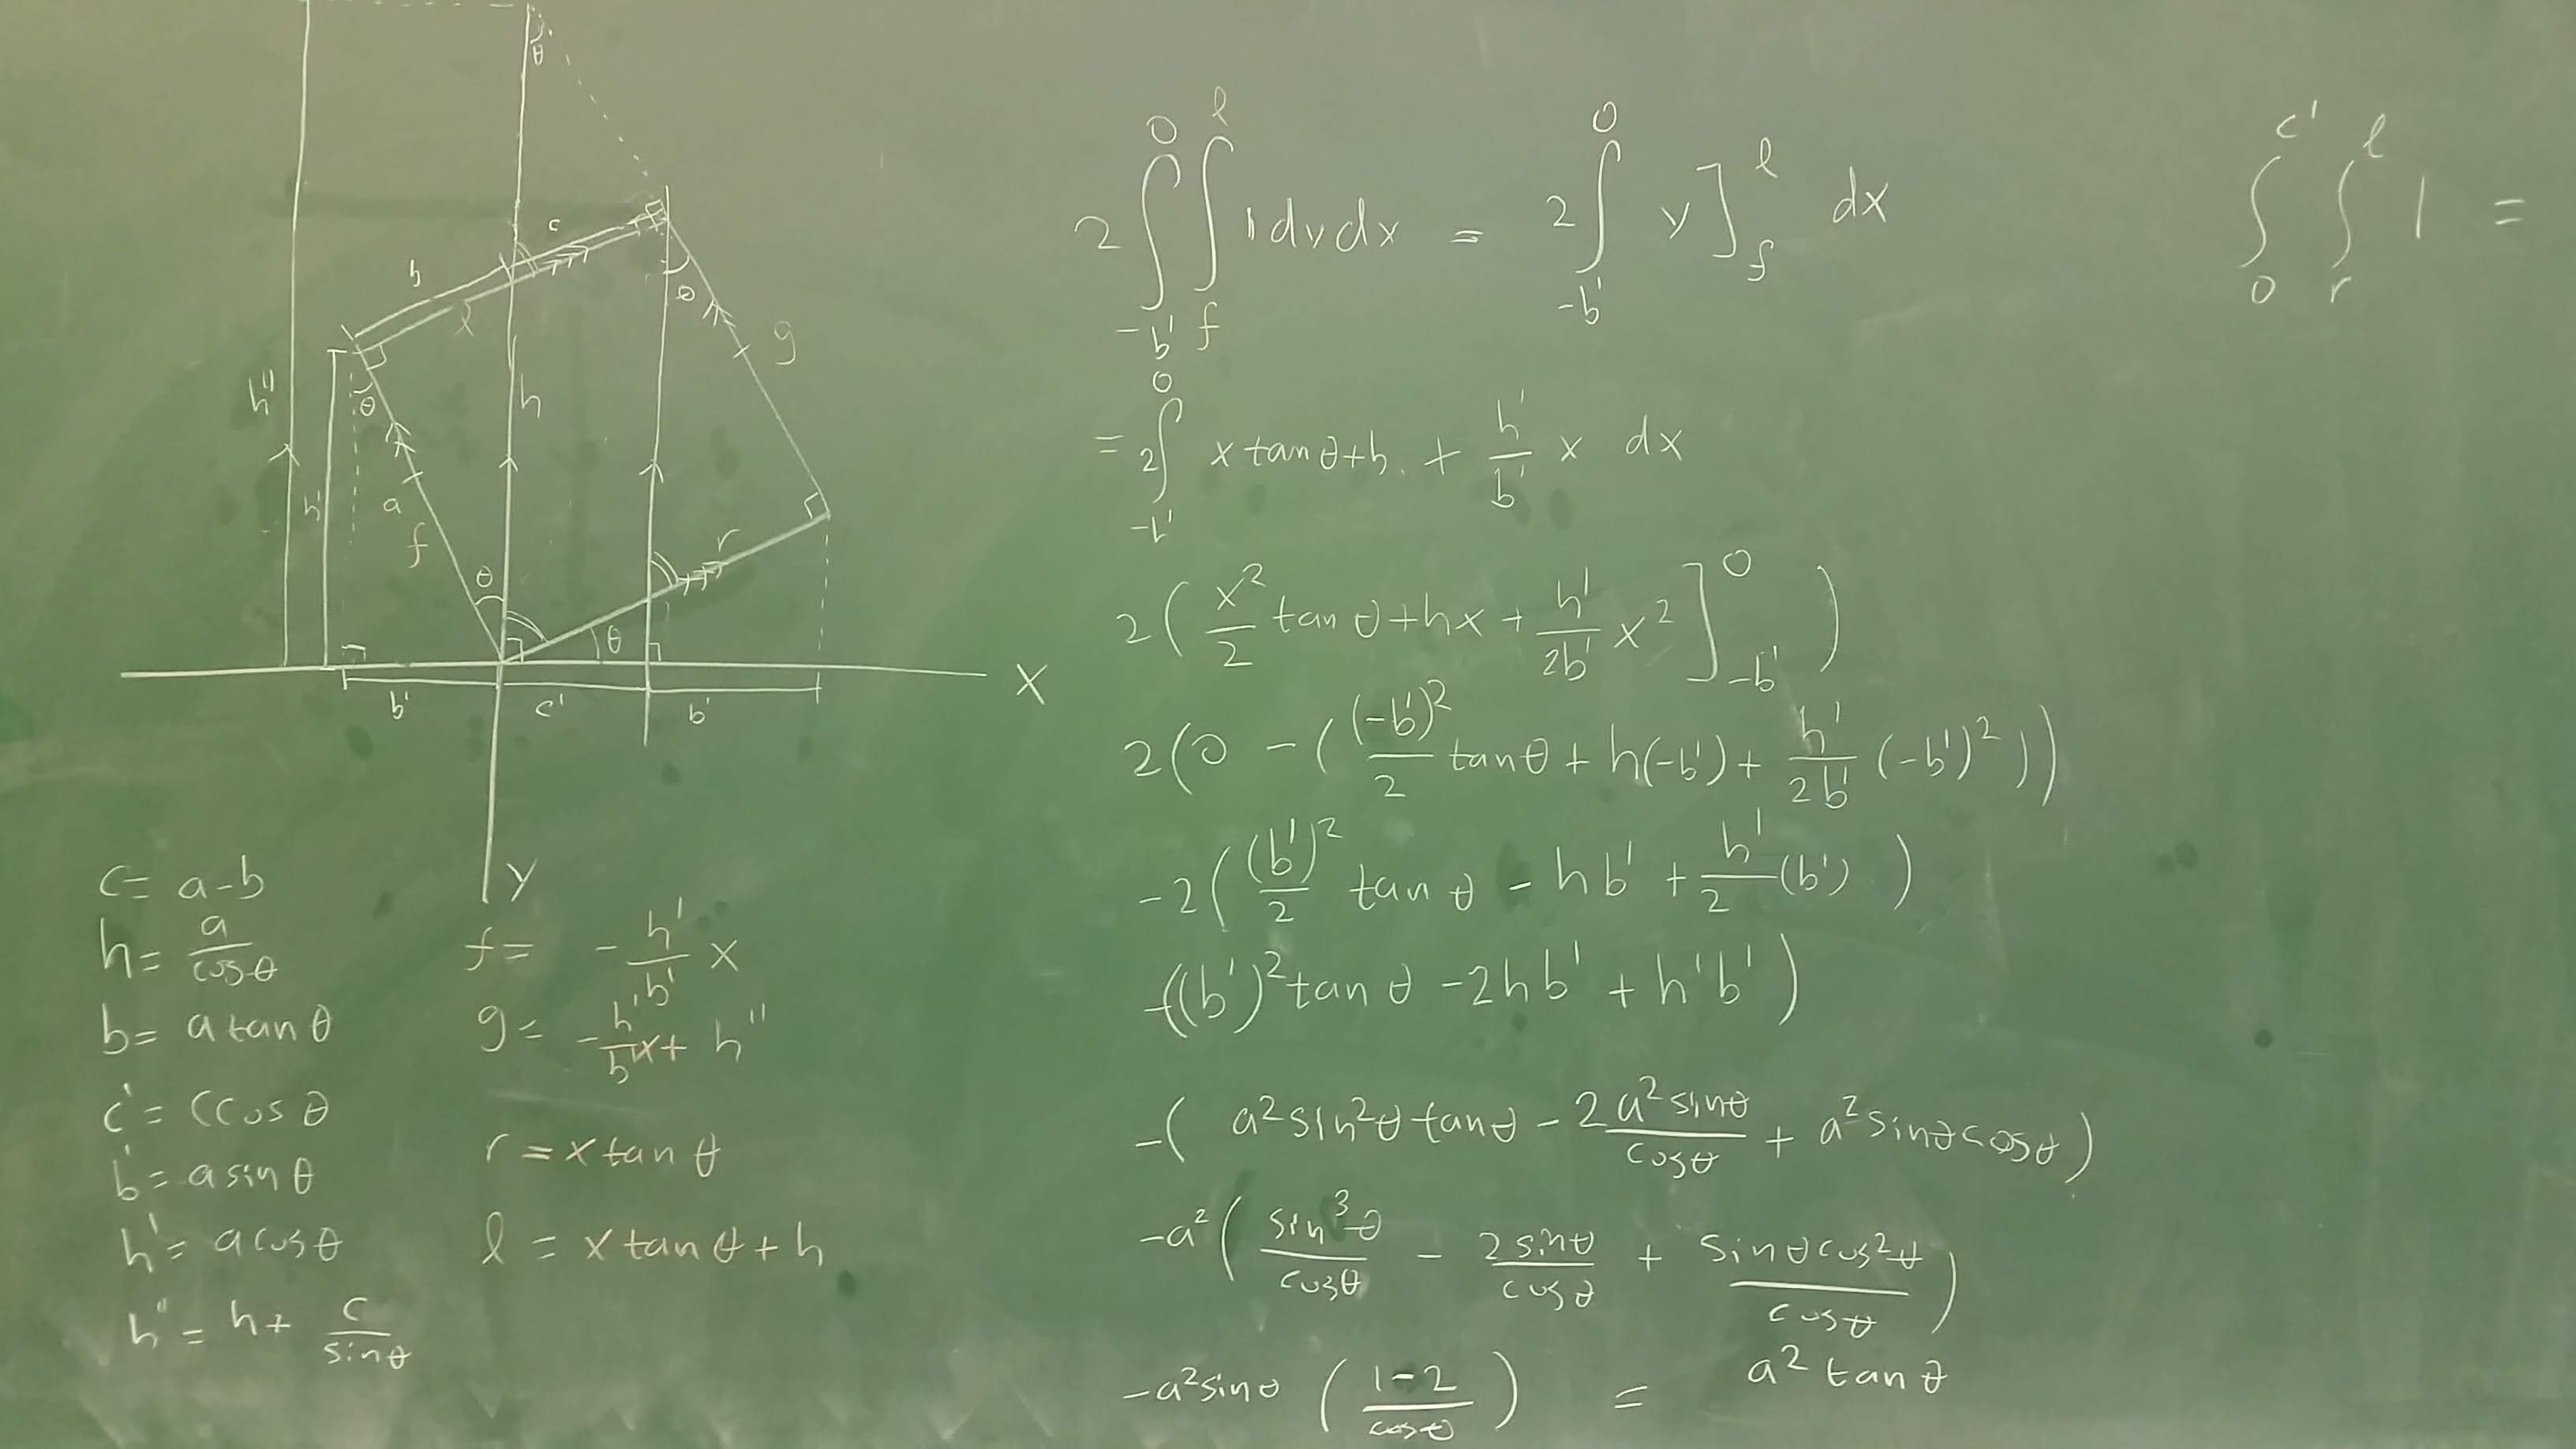 θ
c
b
l
θ
g
h"
θ
h
h'
a
f
θ
r
θ
x
b' c' b'
y
c = a-b
h = a/cosθ
b = a tanθ
c' = c cosθ
b' = a sinθ
h' = a cosθ
h" = h + c/sinθ
f = - h'/b' x
g = - h'/b' x + h"
r = x tanθ
l = x tanθ + h
2 ∫_{-b'}^{0} ∫_{f}^{l} 1 dy dx = 2 ∫_{-b'}^{0} y ]_{f}^{l} dx
= 2 ∫_{-b'}^{0} x tanθ + h + h'/b' x dx
2 ( x²/2 tanθ + hx + h'/2b' x² ]_{-b'}^{0} )
2 ( 0 - ( (-b')²/2 tanθ + h(-b') + h'/2b' (-b')² ) )
-2 ( (b')²/2 tanθ - hb' + h'/2 (b') )
-( (b')² tanθ - 2hb' + h'b' )
-( a² sin²θ tanθ - 2 a² sinθ/cosθ + a² sinθ cosθ )
-a² ( sin³θ/cosθ - 2 sinθ/cosθ + sinθ cos²θ/cosθ )
-a² sinθ ( 1-2/cosθ ) = a² tanθ
∫_{0}^{c'} ∫_{r}^{l} 1 =